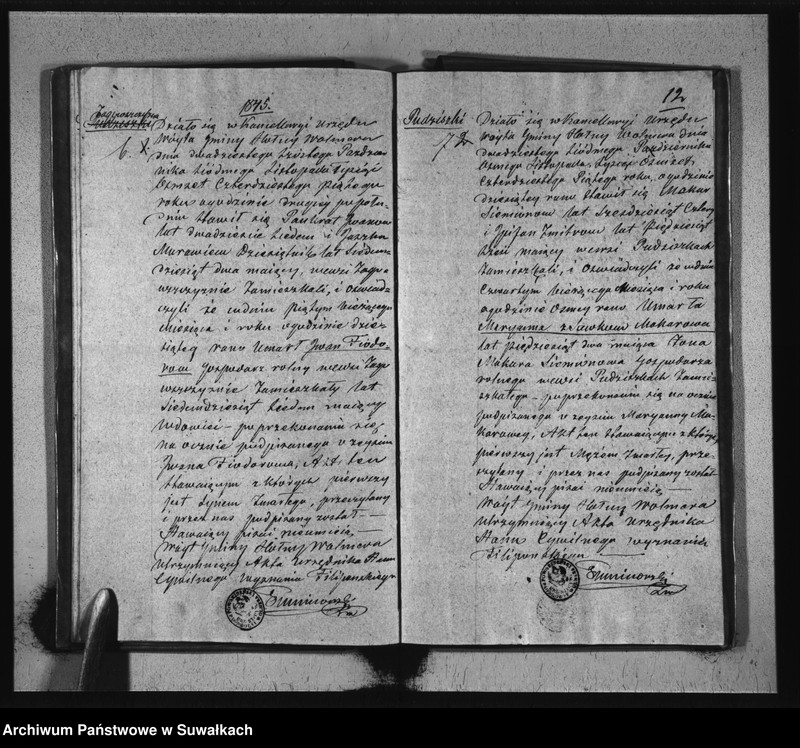 1845.
Zagrowszczyzna
6.
Działo się w Kancellaryi Urzędu
Wóyta Gminy Hołny Wolmera
dnia dwudziestego szóstego Paździer-
nika siódmego Listopada tysiąc
Ośmset Czterdziestego piątego
roku o godzinie drugiey po połu-
dniu stawił się Pankrat Iwanow
lat dwadzieście siedem i
dziesiętnik lat siedm-
dziesiąt dwa maiący, we wsi
zamieszkali, i oświad-
czyli że w dniu piątym bieżącego
Miesiąca i roku o godzinie dzie-
siątey rano Umarł Jwan Fiodo-
row Gospodarz rolny we wsi
zamieszkały lat
siedmdziesiąt siedem maiący
wdowiec – po przekonaniu się
na ocznie podpisanego o zeyściu
Jwana Fiodorowa, Akt ten
stawaiącym z których pierwszy
jest synem Zmarłego, przeczytany
i przez nas podpisany został –
Stawaiący pisać nieumieią –
Wóyt Gminy Hołny Wolmera
Utrzymuiący Akta Urzędnika Stanu
Cywilnego Wyznania Filipońskiego
12
Pudziszki
7
Działo się w Kancellaryi Urzędu
Wóyta Gminy Hołny Wolmera dnia
dwudziestego siódmego Października
Ósmego Listopada tysiąc Ośmset
Czterdziestego Piątego roku, o godzinie
dziesiątey rano stawił się Makar
Siemionow lat sześćdziesiąt Cztery
i lat pięćdziesiąt
trzy maiący we wsi Pudziszkach
zamieszkali, i oświadczyli że w dniu
Czwartym bieżącego Miesiąca i roku
o godzinie Ósmey rano Umarła
Maryanna Makarowa
lat pięćdziesiąt dwa maiąca żona
Makara Siemionowa Gospodarza
rolnego we wsi Pudziszkach zamiesz-
kałego – po przekonaniu się na ocznie
podpisanego o zeyściu Maryanny Ma-
karowey, Akt ten stawaiącym z których
pierwszy jest Mężem Zmarłey, prze-
czytany i przez nas podpisany został
Stawaiący pisać nieumieią –
Wóyt Gminy Hołny Wolmera
Utrzymuiący Akta Urzędnika
Stanu Cywilnego wyznania
Filipońskiego
Archiwum Państwowe w Suwałkach